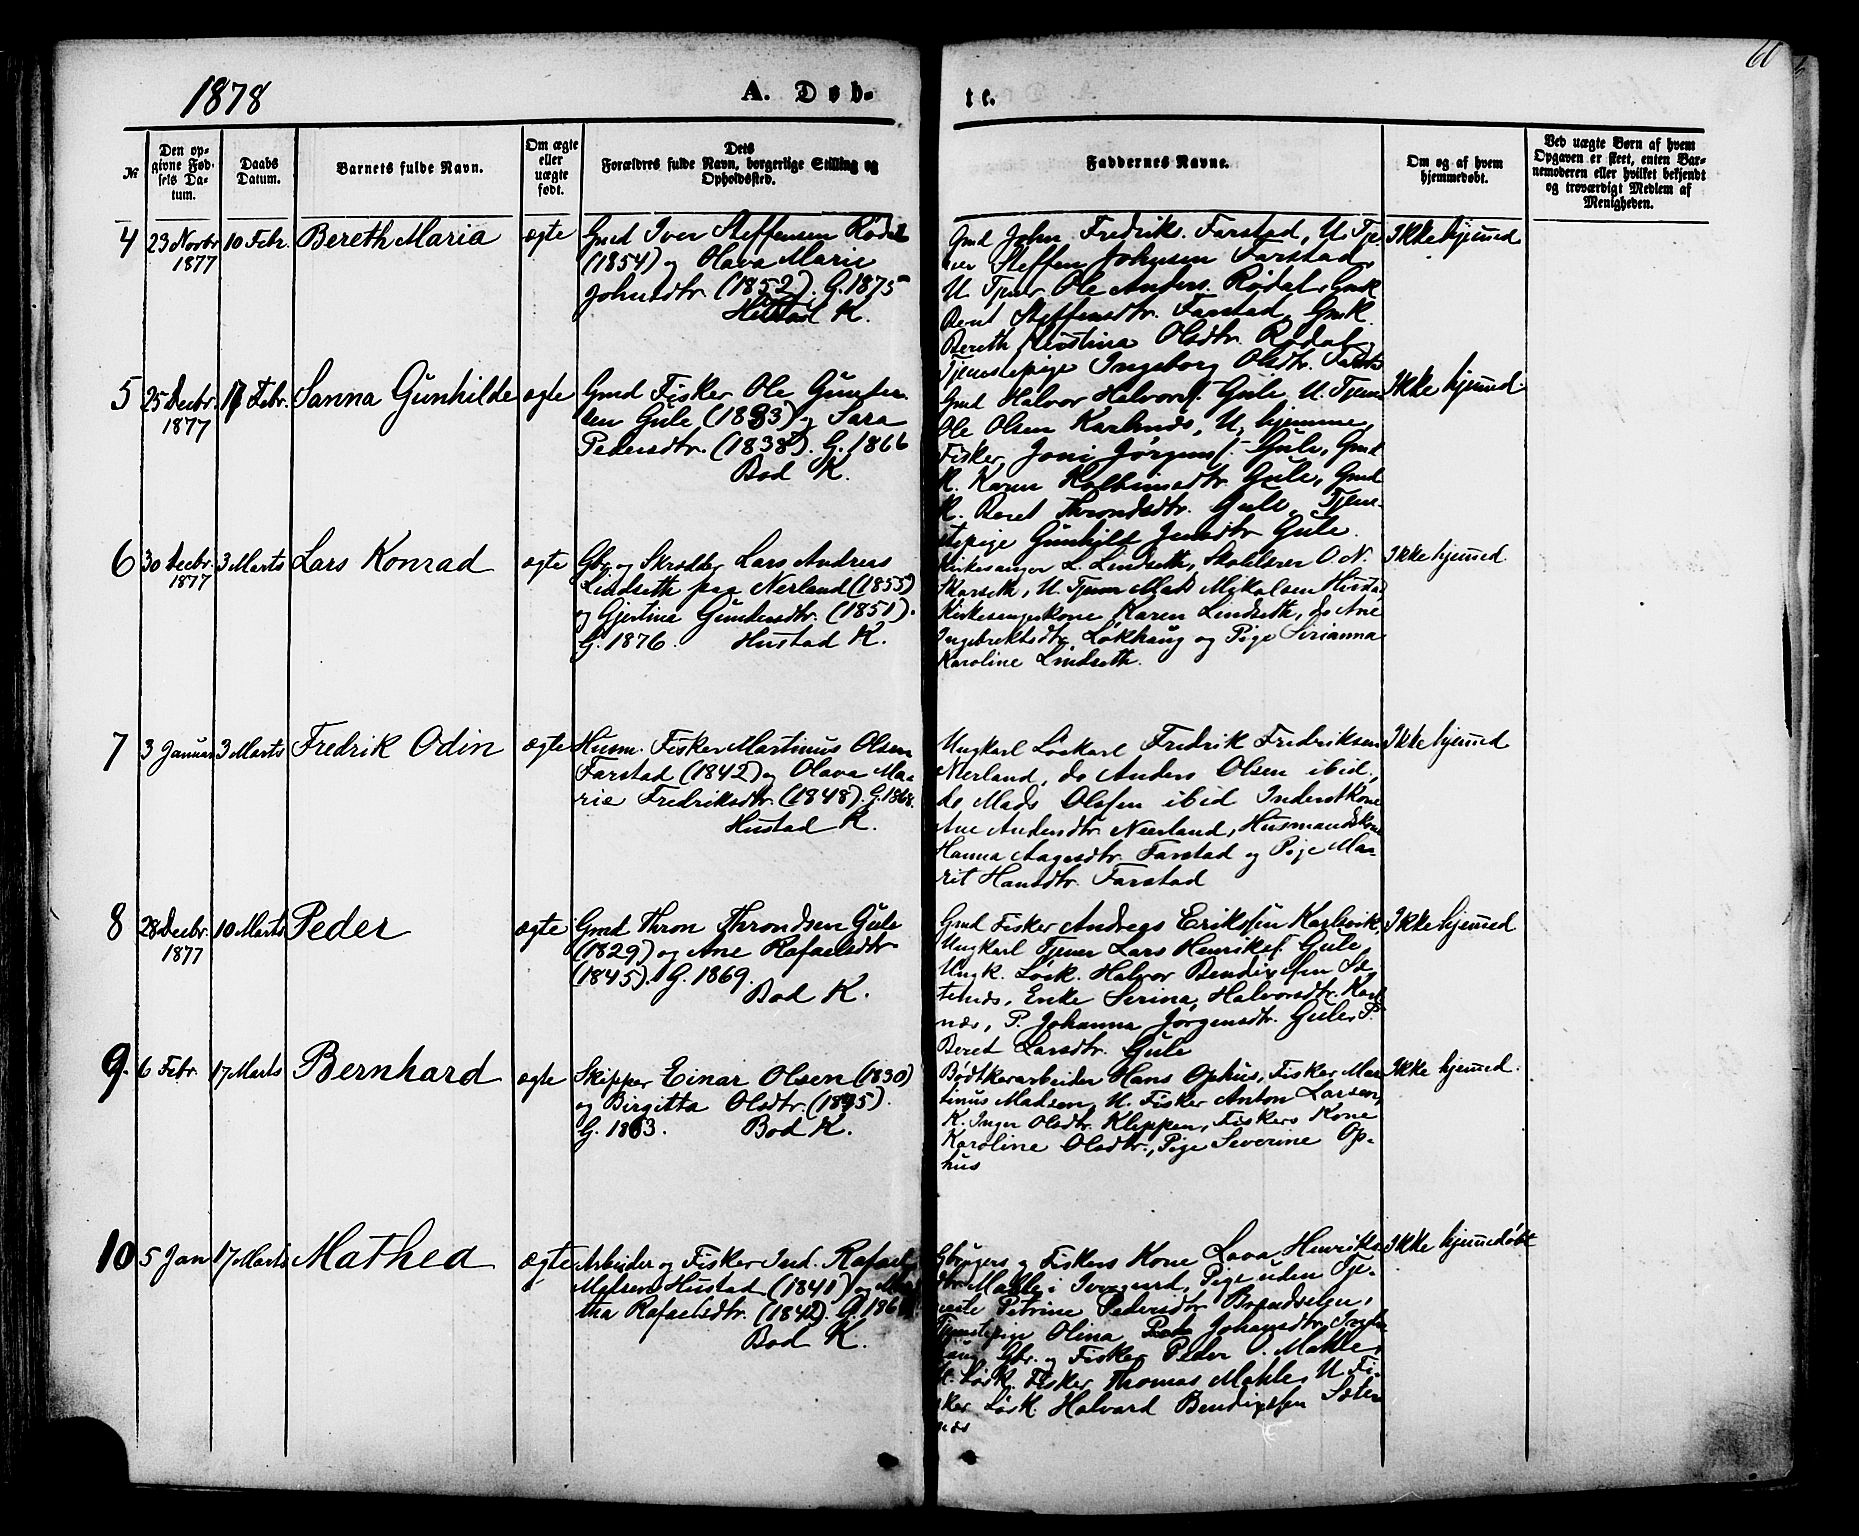 60
1878
A. Døb-
te.
№
Den op-
givne Fød-
sels Da-
tum.
Daabs
Datum.
Barnets fulde Navn.
Om ægte
eller
uægte
født.
Dets
Forældres fulde Navn, borgerlige Stilling og
Opholdssted.
Faddernes Navne.
Om og af hvem
hjemmedøbt.
Ved uægte Børn af hvem
Opgaven er skeet, enten Bar-
nemoderen eller hvilket bekjendt
og troværdigt Medlem af
Menigheden.
4
23 Novbr
1877
10 Febr.
Bereth Maria
ægte
Gmd Iver Steffensen Rødal
(1854) og Olava Marie
Johnsdtr. (1852). G. 1875
Hustad K.
Gmd John Fredriks. Farstad, U. Tje-
ner Steffen Johnsen Farstad,
U. Tjener Ole Anders. Rødal, Gmk
Berit Steffensdtr. Farstad, Gmk.
Bereth Kristina Olsdtr. Rødal,
Tjenestepige Ingeborg Olsdtr.
Ikke hjemmed
5
25 Decbr.
1877
17 Febr.
Sanna Gunhilde
ægte
Gmd Fisker Ole
sen Gule (1833) og Sara
Pedersdtr. (1838). G. 1866
Bod K.
Gmd Halvor Halvors. Gule, U. Tjener
Ole Olsen Karlsnæs, U. hjemme
Fisker Joni Jørgens. Gule, Gmd
K. Karen Kolbeinsdtr. Gule, Gmd
K. Beret Throndsdtr. Gule, Tjen-
stepige Gunhild Jensdtr. Gule.
Ikke hjemmed
6
30 Decbr.
1877
3 Marts
Lars Konrad
ægte
Gbr. og Skrædder Lars Andreas
Lindseth paa Nerland (1855)
og Gjertina Gundersdtr. (1851).
G. 1876. Hustad K.
Kirkesanger L. Lindseth, Skolelærer O. N.
Skarseth, U. Tjener Mads Mikalsen Hustad
Kirkesangerkone Karen Lindseth, do Ane
Ingebrektsdtr. Løkhaug og Pige Serianna
Karoline Lindseth.
Ikke hjemmed
7
3 Januar
3 Marts
Fredrik Odin
ægte
Husm. Fisker Martinus Olsen
Farstad (1842) og Olava Ma-
rie Fredriksdtr. (1848). G. 1868.
Hustad K.
Ungkarl Løskarl Fredrik Fredriksen
Nerland, do Anders Olsen ibid.,
do Mads Olsen ibid Inderstkone
Ane Andersdtr. Nerland, Husmandskone
Hanna Aagesdtr. Farstad og Pige Ma-
rit Hansdtr. Farstad
Ikke hjemmed
8
28 Decbr.
1877
10 Marts
Peder
ægte
Gmd Thron Throndsen Gule
(1829) og Ane Rafaelsdtr.
(1845). G. 1869.
Bod K.
Gmd Fisker Andreas Erikssen Karlsvik,
Ungkarl Tjener Lars Henriks. Gule,
Ungk. Løsk. Halvor Bendixsen Sæ-
ternæs, Enke Serina Halvorsdtr. Karl-
næs, P. Johanna Jørgensdtr. Gule, P.
Beret Larsdtr. Gule
Ikke hjemmed
9.
6 Febr.
17 Marts
Bernhard
ægte
Skipper Einar Olsen (1830)
og Birgitta Olsdtr. (1835).
G. 1863. Bod K.
Bødkerarbeider Hans Ophus, Fisker Mar-
tinus Madsen, U. Fisker Anton Larsen,
K. Inger Olsdtr. Kleppen, Fiskers Kone
Karoline Olsdtr., Pige Severine Op-
hus
Ikke hjemmed.
10
5 Jan
17 Marts
Mathea
ægte
Arbeider og Fisker Ind. Rafael
Hustad (1841) og Mar-
tha Rafaelsdtr. (1842)
Bod K.
Gbrugers og Fiskers Kone Lava Henriks-
dtr. Mahle i Pige uden Tje-
neste Petrine Pedersdtr.
Olina Johansdtr.
Gbr. og Fisker Peder O. Mahle,
U. Løsk. Fisker Thomas Mahle, U. Fi-
sker Løsk. Halvard Bendixssen Sæter-
næs
Ikke hjemmedøbt